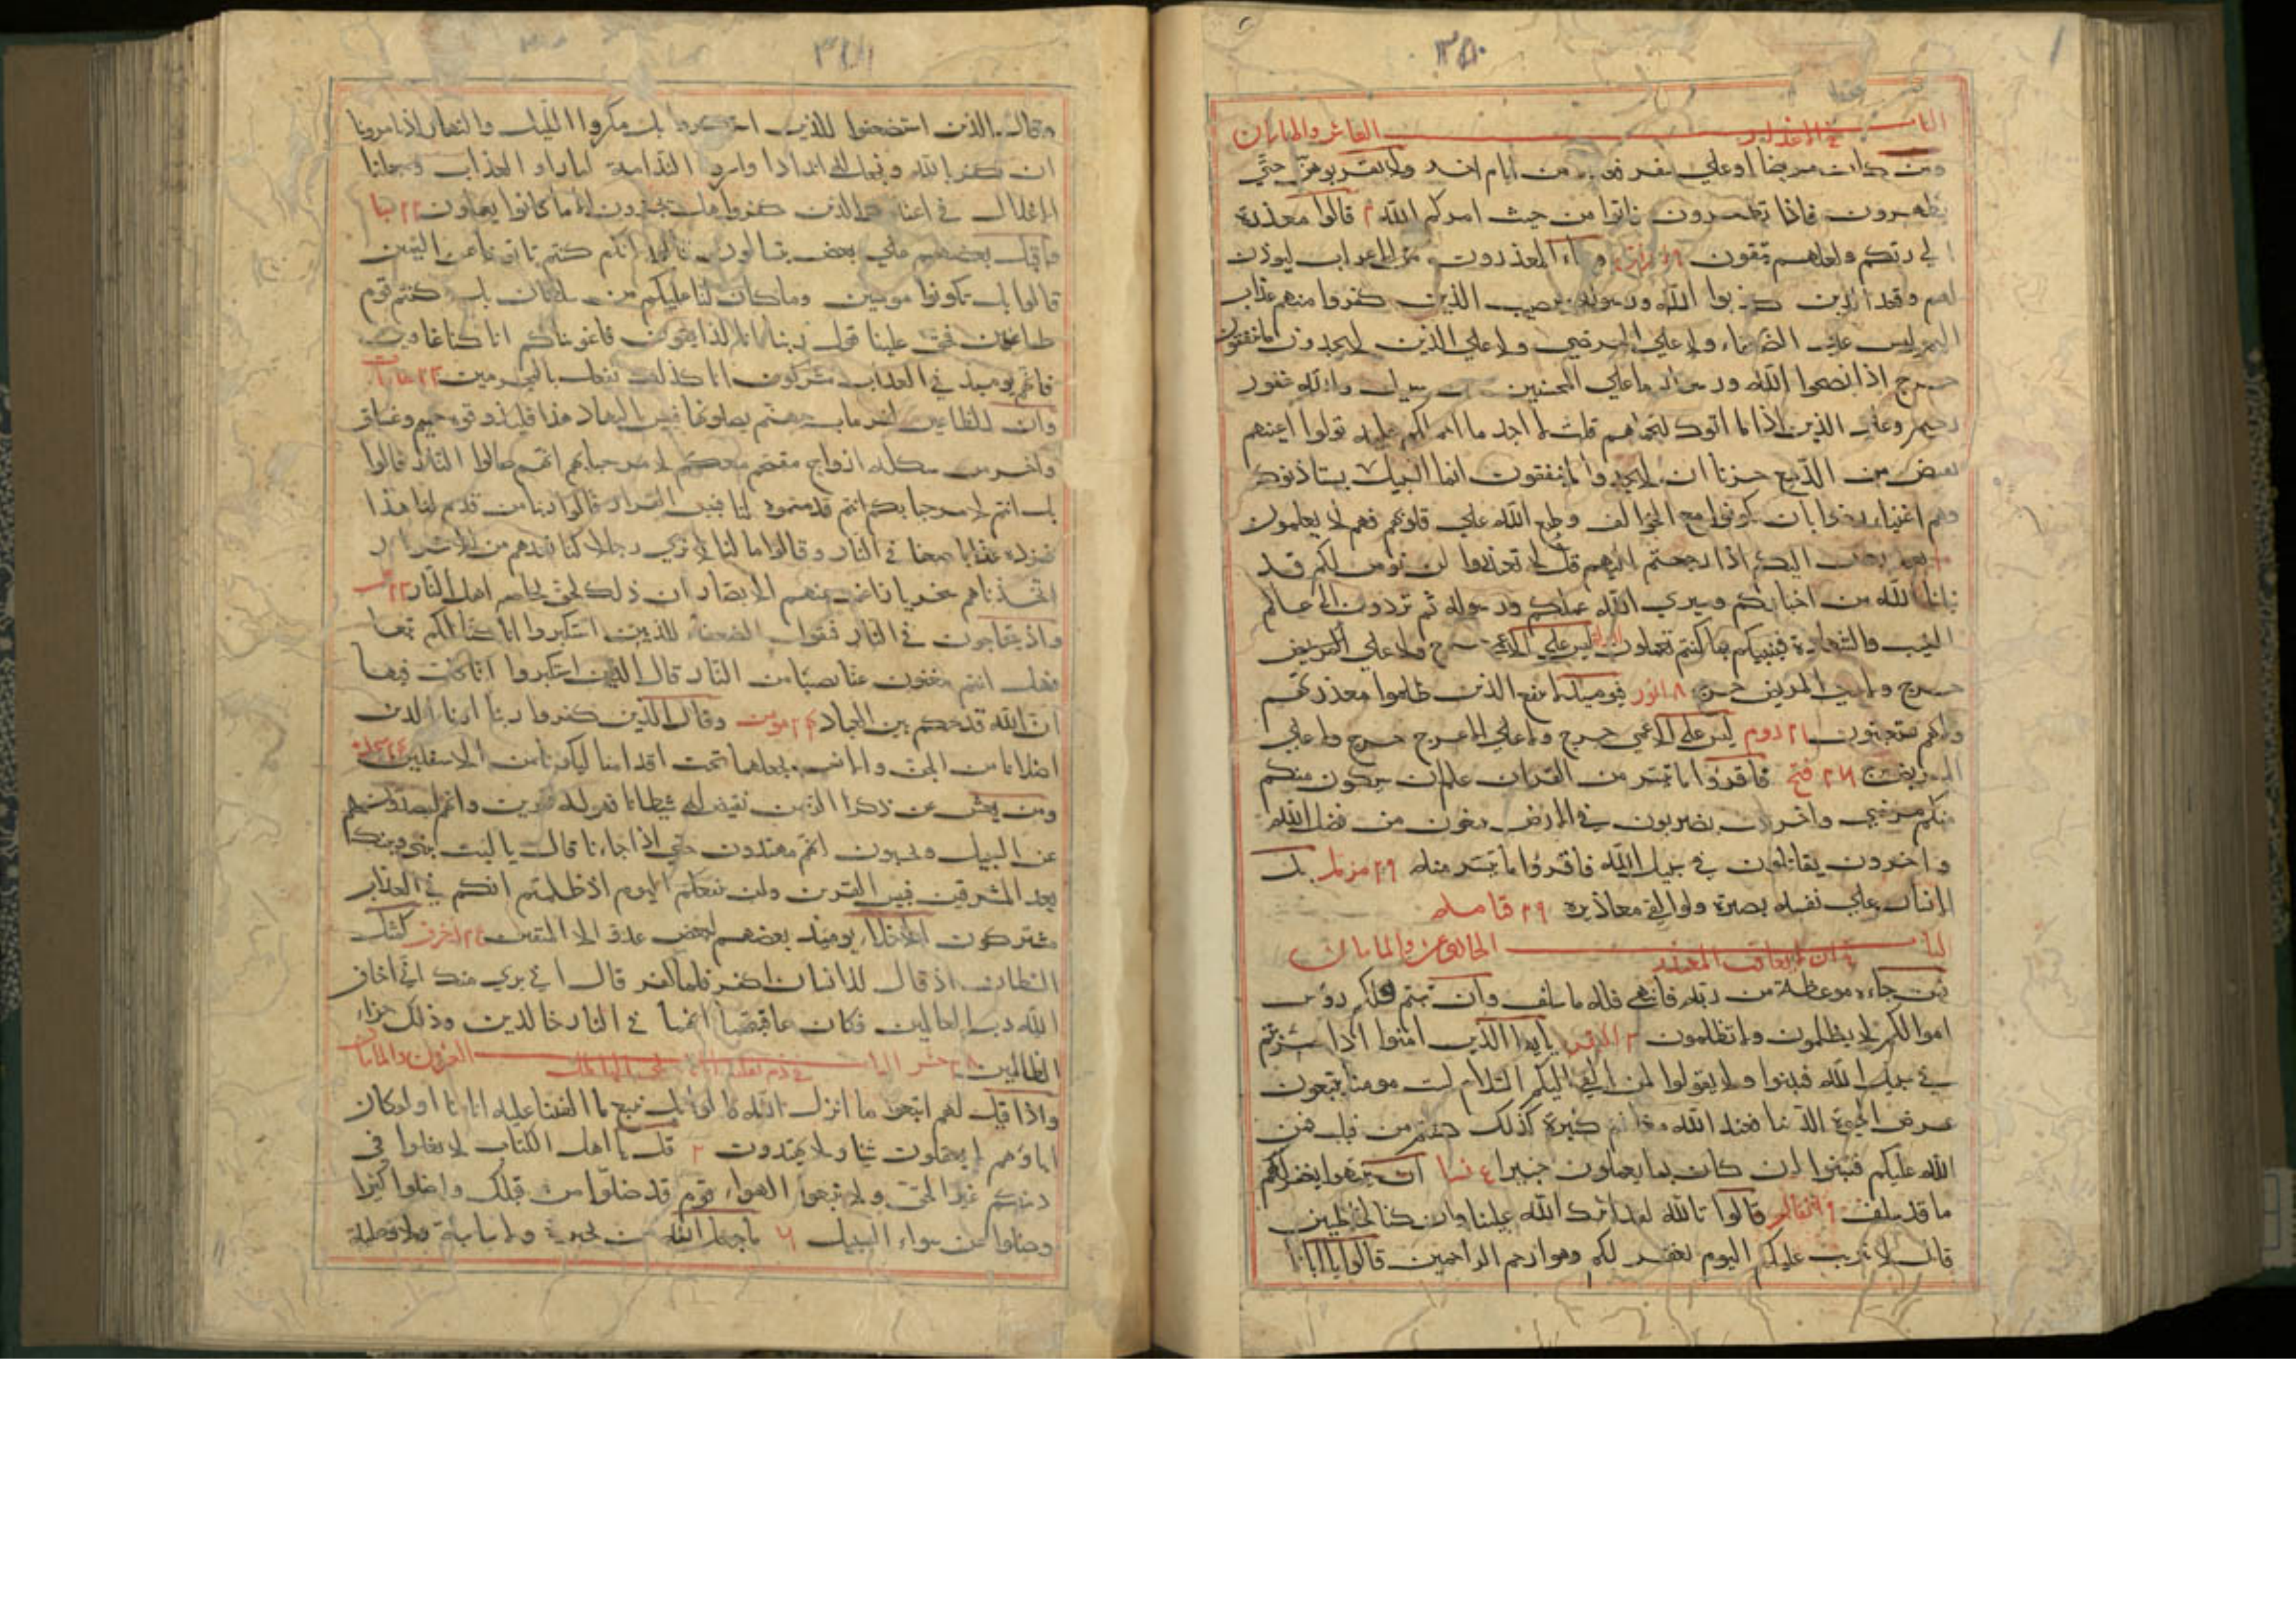 ٣٥٠
الباب في الاعذار العاشر والمايتان
ومن كان مريضا او علي سفر من ايام اخر ولا تقربوهن حتي
يطهرون فاذا تطهرون فاتوا من حيث امركم الله ٢ قالوا معذرة
الي ربكم ولعلهم يتقون ٩ وجاء المعذرون من الاعراب ليوذن
لهم وقعد الذين كذبوا الله ورسوله سيصيب الذين كفروا منهم عذاب
اليم ليس علي الضعفاء ولا علي المرضي ولا علي الذين لا يجدون ما ينفقون
حرج اذا نصحوا لله ورسوله ما علي المحسنين من سبيل والله غفور
رحيم وعلي الذين اذا ما اتوك لتحملهم قلت لا اجد ما احملكم عليه تولوا اعينهم
تفيض من الدمع حزنا ان لا يجدوا ما ينفقون انما السبيل يستاذنوك
وهم اغنياء رضوا بان يكونوا مع الخوالف وطبع الله علي قلوبهم فهم لا يعلمون
اليكم اذا رجعتم اليهم قل لا تعتذروا لن نومن لكم قد
نبانا الله من اخباركم وسيري الله عملكم ورسوله ثم تردون الي عالم
الغيب والشهادة فينبيكم بما كنتم تعملون ليس علي الاعمي حرج ولا علي المريض
حرج ١٨ النور فيوميذ لا ينفع الذين ظلموا معذرتهم
ولاهم يستعتبون ٢١ روم ليس علي الاعمي حرج ولا علي الاعرج حرج ولا علي
المريض حرج ٢٦ فتح فاقروا ما تيسر من القران علم ان سيكون منكم
منكم مرضي واخرون يضربون في الارض يبتغون من فضل الله
واخرون يقاتلون في سبيل الله فاقروا ما تيسر منه ٢٩ مزمل بل
الانسان علي نفسه بصيرة ولو القي معاذيره ٢٩ قيامه
الباب الحادي عشر والمايتان
فمن جاءه موعظة من ربه فانتهي فله ما سلف وان تبتم فلكم رؤس
اموالكم لا يظلمون ولا تظلمون ٣ البقره يا ايها الذين امنوا اذا ضربتم
في سبيل الله فتبينوا ولا تقولوا لمن القي اليكم السلام لست مومنا تبتغون
عرض الحيوة الدنيا فعند الله مغانم كثيرة كذلك كنتم من قبل فمن
الله عليكم فتبينوا ان كان بما يعملون خبيرا ٤ نسا ان ينتهوا يغفر لهم
ما قد سلف ٩ انفال قالوا تالله لقد اثرك الله علينا وان كنا لخاطين
قال لا تثريب عليكم اليوم يغفر لكم وهو ارحم الراحمين قالوا يا ابانا
وقال الذين استضعفوا للذين استكبروا بل مكروا الليل والنهار اذ تامرونا
ان نكفر بالله ونجعل له اندادا واسروا الندامة لما راو العذاب وجعلنا
الاغلال في اعناق الذين كفروا هل يجزون الا ما كانوا يعملون ٢٢ سبا
واقبل بعضهم علي بعض يتسالون قالوا انكم كنتم تاتوننا عن اليمين
قالوا بل تكونوا مومنين وما كان لنا عليكم من سلطان بل كنتم قوم
طاغين فحق علينا قول ربنا انا لذايقون فاغويناكم انا كنا غاوين
فانهم يوميذ في العذاب مشتركون انا كذلك نفعل بالمجرمين ٢٣
وان للطاغين لشر ماب جهنم يصلونها فبيس المهاد هذا فليذوقوه حميم وغساق
واخر من شكله ازواج مقتحم معكم لا مرحبا بهم انهم صالوا النار قالوا
بل انتم لا مرحبا بكم انتم قدمتموه لنا فبيس القرار قالوا ربنا من قدم لنا هذا
فزده عذابا ضعفا في النار وقالوا ما لنا لا نري رجالا كنا نعدهم من الاشرار
اتخذناهم سخريا زاغت عنهم الابصار ان ذلك لحق تخاصم اهل النار ٢٣ ص
واذ يتحاجون في النار فيقول الضعفاء للذين استكبروا انا كنا لكم تبعا
فهل انتم مغنون عنا نصيبا من النار قال الذين استكبروا انا كل فيها
ان الله قد حكم بين العباد ٢٤ مومن وقال الذين كفروا ربنا ارنا الذين
اضلانا من الجن والانس نجعلهما تحت اقدامنا ليكونا من الاسفلين ٢٤ سجده
ومن يعش عن ذكر الرحمن نقيض له شيطانا فهو له قرين وانهم ليصدونهم
عن السبيل ويحسبون انهم مهتدون حتي اذا جاءنا قال يا ليت بيني وبينك
بعد المشرقين فبيس القرين ولن ينفعكم اليوم اذ ظلمتم انكم في العذاب
مشتركون الاخلاء يوميذ بعضهم لبعض عدو الا المتقين ٢٥ زخرف كمثل
الشيطان اذ قال للانسان اكفر فلما كفر قال اني بري منك اني اخاف
الله رب العالمين فكان عاقبتهما انهما في النار خالدين وذلك جزاء
الظالمين ٢٨ حشر الباب العشرون والمايتان
واذا قيل لهم اتبعوا ما انزل الله قالوا بل نتبع ما الفينا عليه اباءنا اولوكان
اباؤهم لا يعقلون شيا ولا يهتدون ٢ قل يا اهل الكتاب لا تغلوا في
دينكم غير الحق ولا تتبعوا اهواء قوم قد ضلوا من قبلك واضلوا كثيرا
وضلوا عن سواء السبيل ٦ ما جعل الله من بحيرة ولا سايبة ولا وصيلة